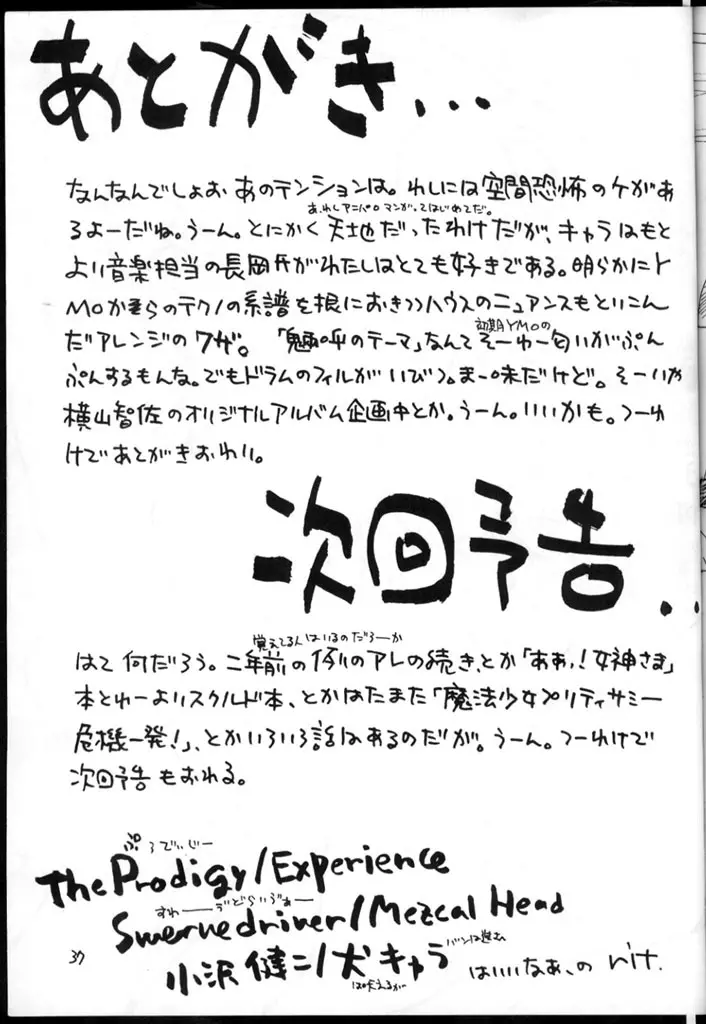 あとがき...
なんなんでしょお あのテンションは。わしには空間恐怖のケがあ
あ、わしアニパロマンガってはじめてだ。
るよーだね。うーん。とにかく天地だったわけだが、キャラはもと
より音楽担当の長岡氏がわたしはとても好きである。明らかにY
MOから のテクノの系譜を根におきつつハウスのニュアンスもとりこん
初期YMOの
だアレンジのワザ。「魎呼のテーマ」なんてそーゆー匂いがぷん
ぷんするもんな。でもドラムのフィルが いびつ。まー味だけど。そーいや
横山智佐のオリジナルアルバム企画中とか。うーん。いいかも。つーわ
けであとがきおわり。
次回予告...
覚えてる人はいるのだろーか
はて何だろう。二年前の例のアレの続き、とか「ああっ!女神さま」
本とゆーよりスクルド本、とかはたまた「魔法少女プリティサミー
危機一発!」、とかいろいろ話はあるのだが。うーん。つーわけで
次回予告もおわる。
ぷろでぃじー
The Prodigy/Experience
すわーゔどらいぶぁー
Swervedriver/Mezcal Head
小沢健二/犬キャラ
バンは進む
は吠えるが
はいいなあ、の
37